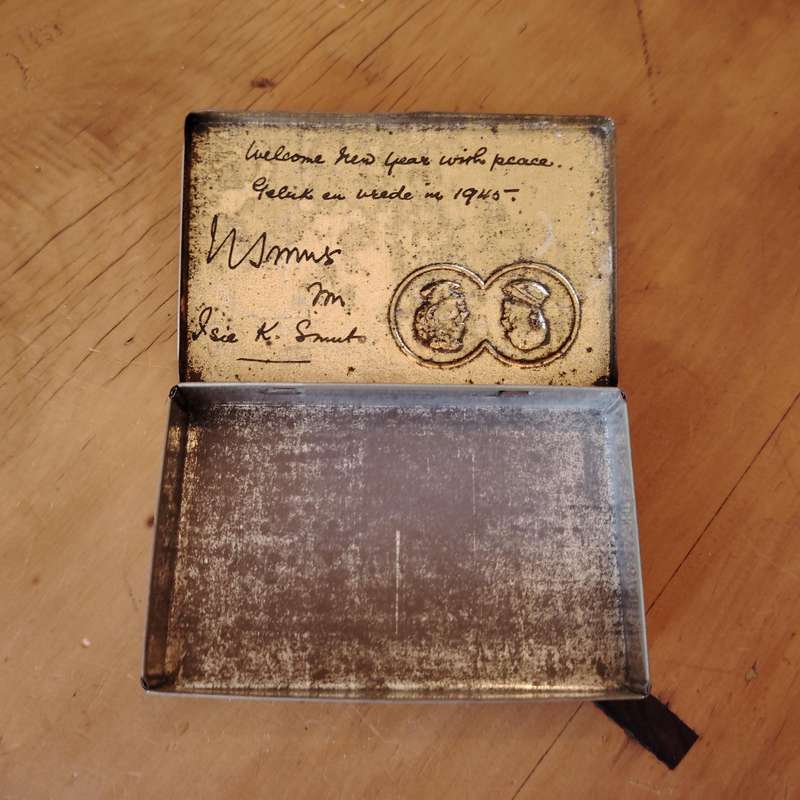 Welcome New Year with peace.
Geluk en vrede in 1945.
JCSmuts
en
Isie K. Smuts